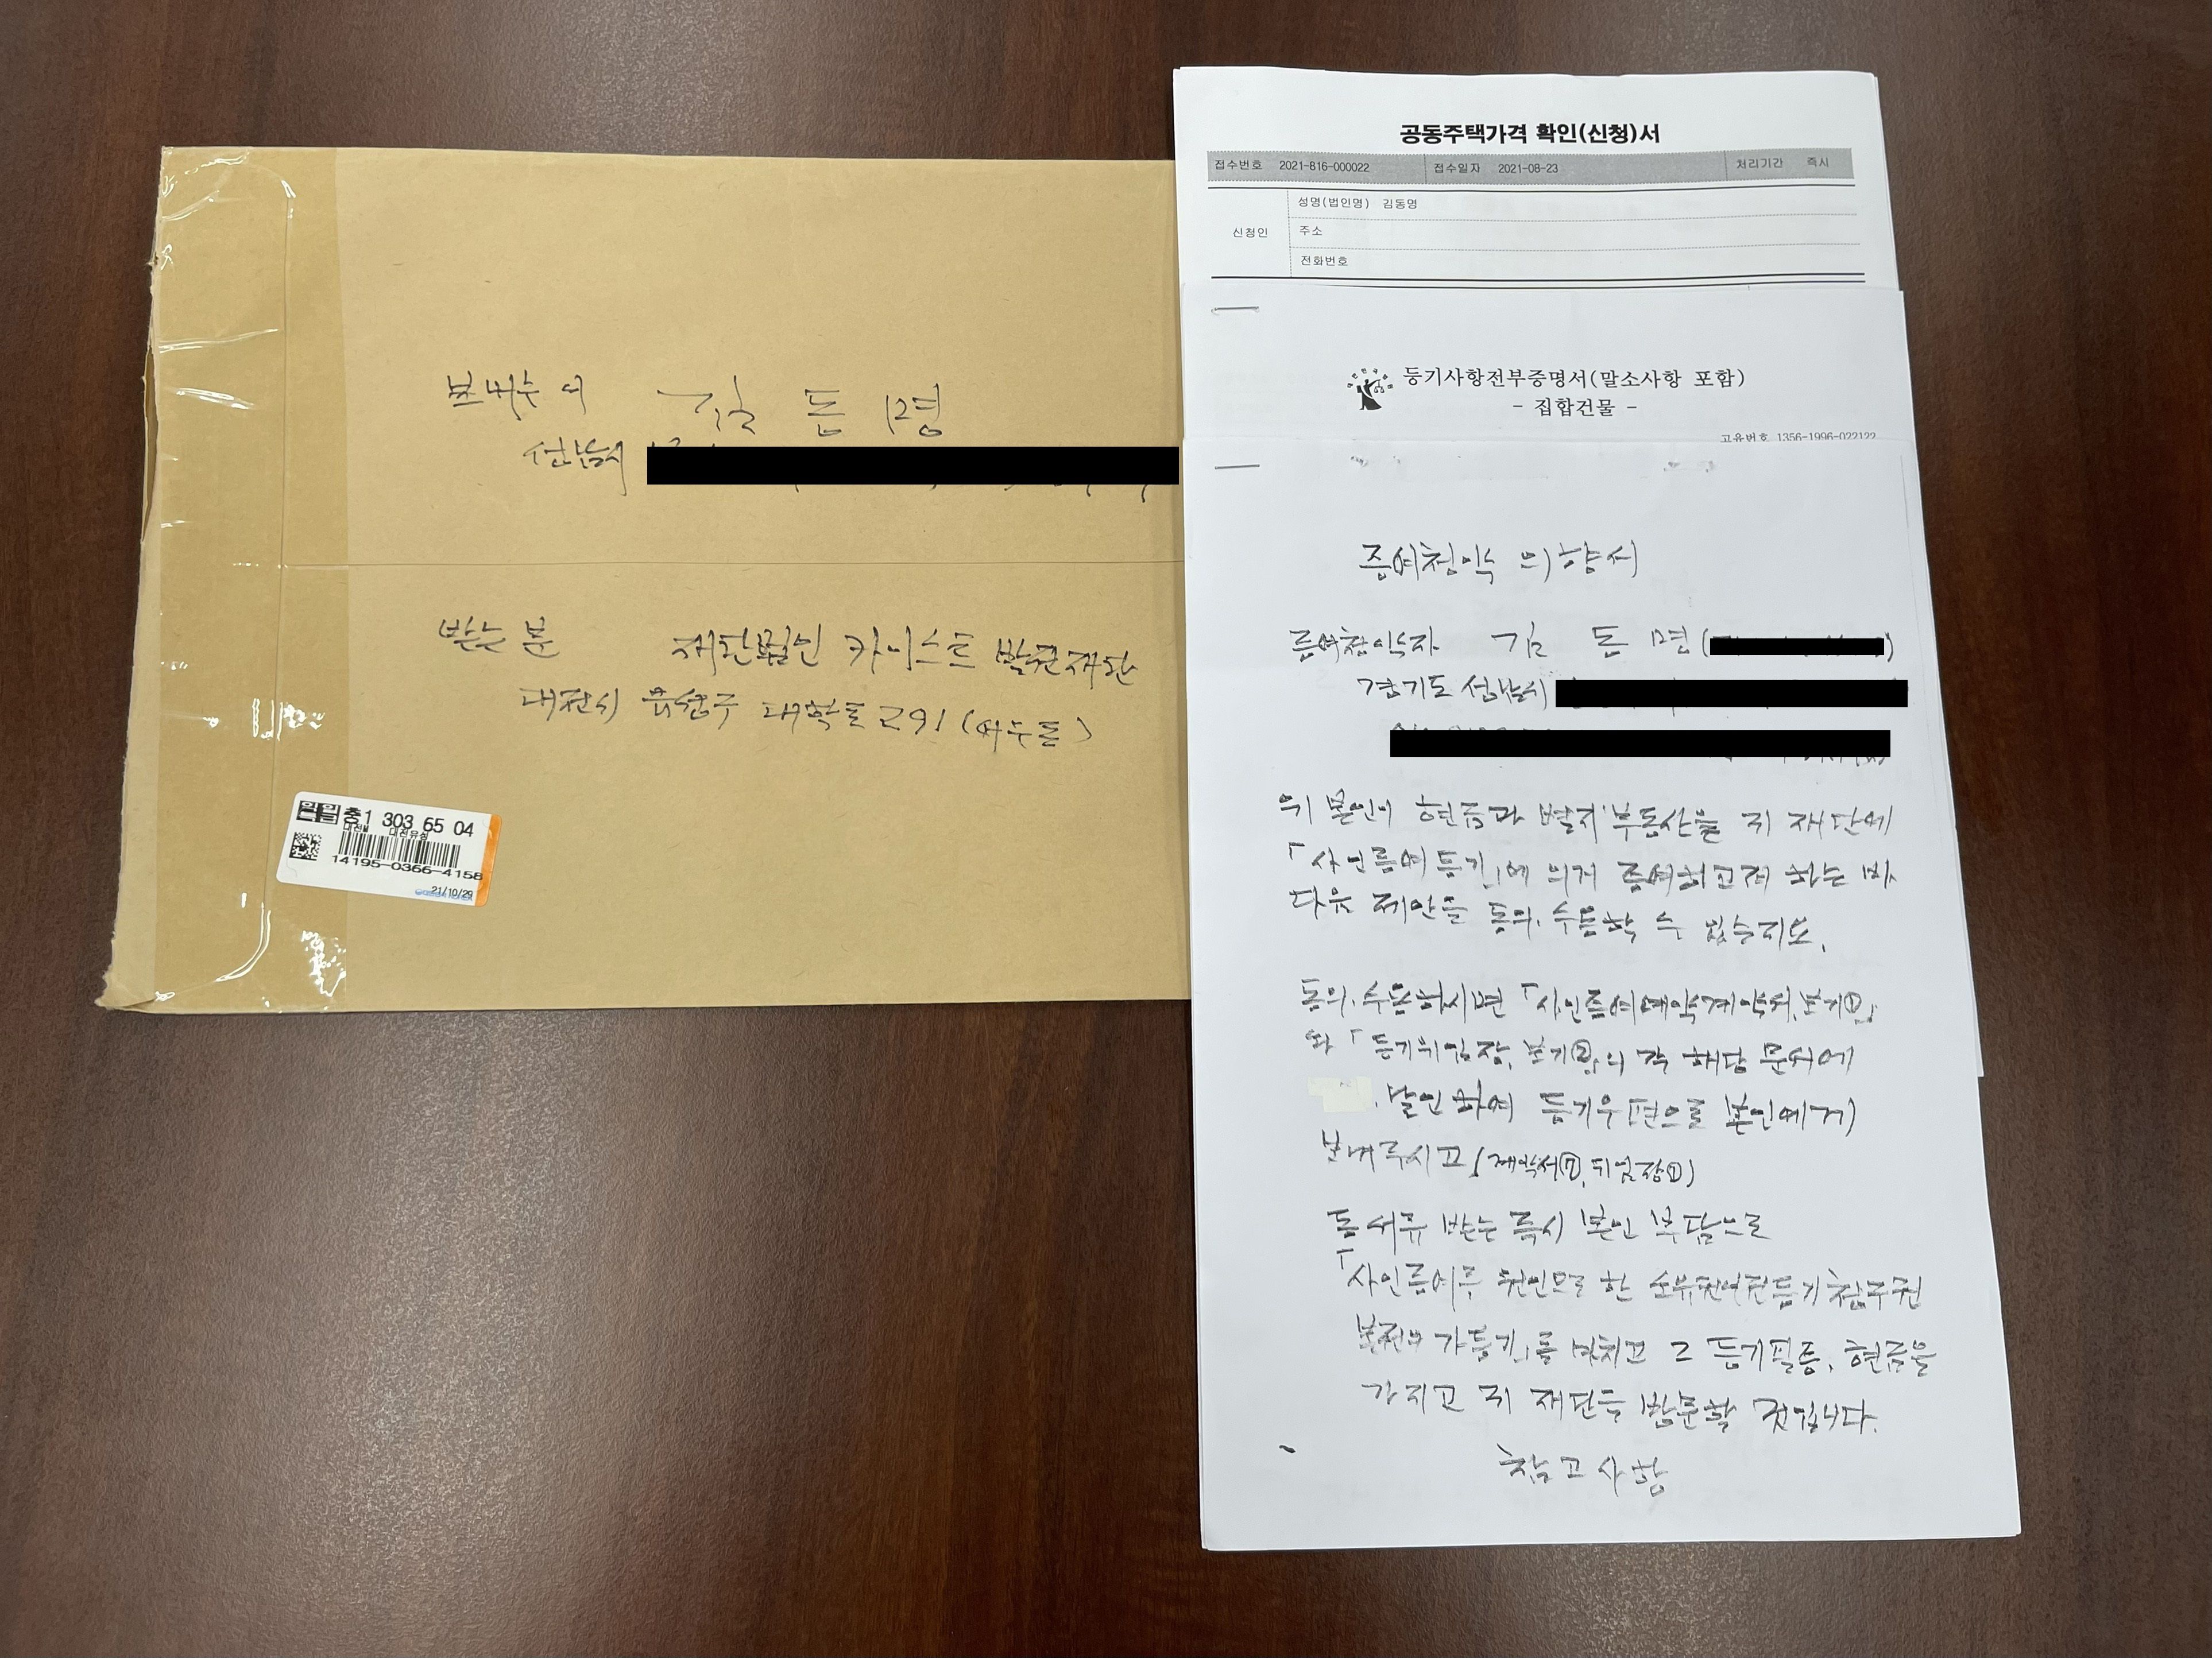 보내는 이 김 동 명
성남시
받는 분 재단법인 카이스트 발전재단
대전시 유성구 대학로 291 (어은동)
익일 충1 303 65 04
대전M 대전유성
14195-0366-4158
21/10/29
공동주택가격 확인(신청)서
접수번호 2021-816-000022 접수일자 2021-08-23 처리기간 즉시
신청인
성명(법인명) 김동명
주소
전화번호
등기사항전부증명서(말소사항 포함)
- 집합건물 -
고유번호 1356-1996-022122
증여청약 의향서
증여청약자 김 동 명 (
경기도 성남시
위 본인이 현금과 별지 부동산을 귀 재단에
「사인증여등기」에 의거 증여하고저 하는 바
다음 제안을 동의·수증할 수 있수지요.
동의·수증하시면 「사인증여예약계약서, 보기①」
와 「등기위임장, 보기②」의 각 해당 문서에
. 날인하여 등기우편으로 본인에게
보내주시고 (계약서⑦, 위임장①)
동 서류 받는 즉시 본인 부담으로
「사인증여를 원인으로 한 소유권이전등기청구권
보전의 가등기」를 마치고 그 등기필증, 현금을
가지고 귀 재단을 방문할 것입니다.
참고사항